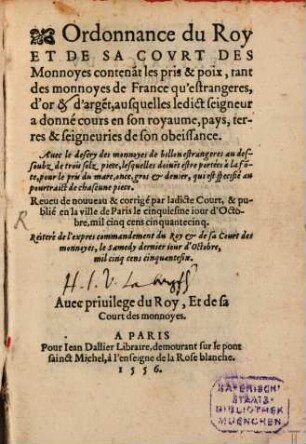 Ordonnance du Roy
ET DE SA COVRT DES
Monnoyes contenãt les pris & poix, tant
des monnoyes de France qu'estrangeres,
d'or & d'argẽt, ausquelles ledict seigneur
a donné cours en son royaume, pays, ter-
res & seigneuries de son obeissance.
Auec le descry des monnoyes de billon estrangeres au des-
soubz de trois solz piece, lesquelles doiuẽt estre portées à la fõ-
te, pour le pris du marc, once, gros & denier, qui est specifié au
pourtraict de chascune piece.
Reueu de nouueau & corrigé par ladicte Court, & pu-
blié en la ville de Paris le cinquiesme iour d'Octo-
bre, mil cinq cens cinquantecinq.
Reiteré de l'expres commandement du Roy & de sa Court des
monnoyes, le Samedy dernier iour d'Octobre,
mil cinq cens cinquantesix.
Auec priuilege du Roy, Et de sa
Court des monnoyes.
A PARIS
Pour Iean Dallier Libraire, demourant sur le pont
sainct Michel, à l'enseigne de la Rose blanche.
1556.
BAYERISCHE
STAATS-
BIBLIOTHEK
MUENCHEN